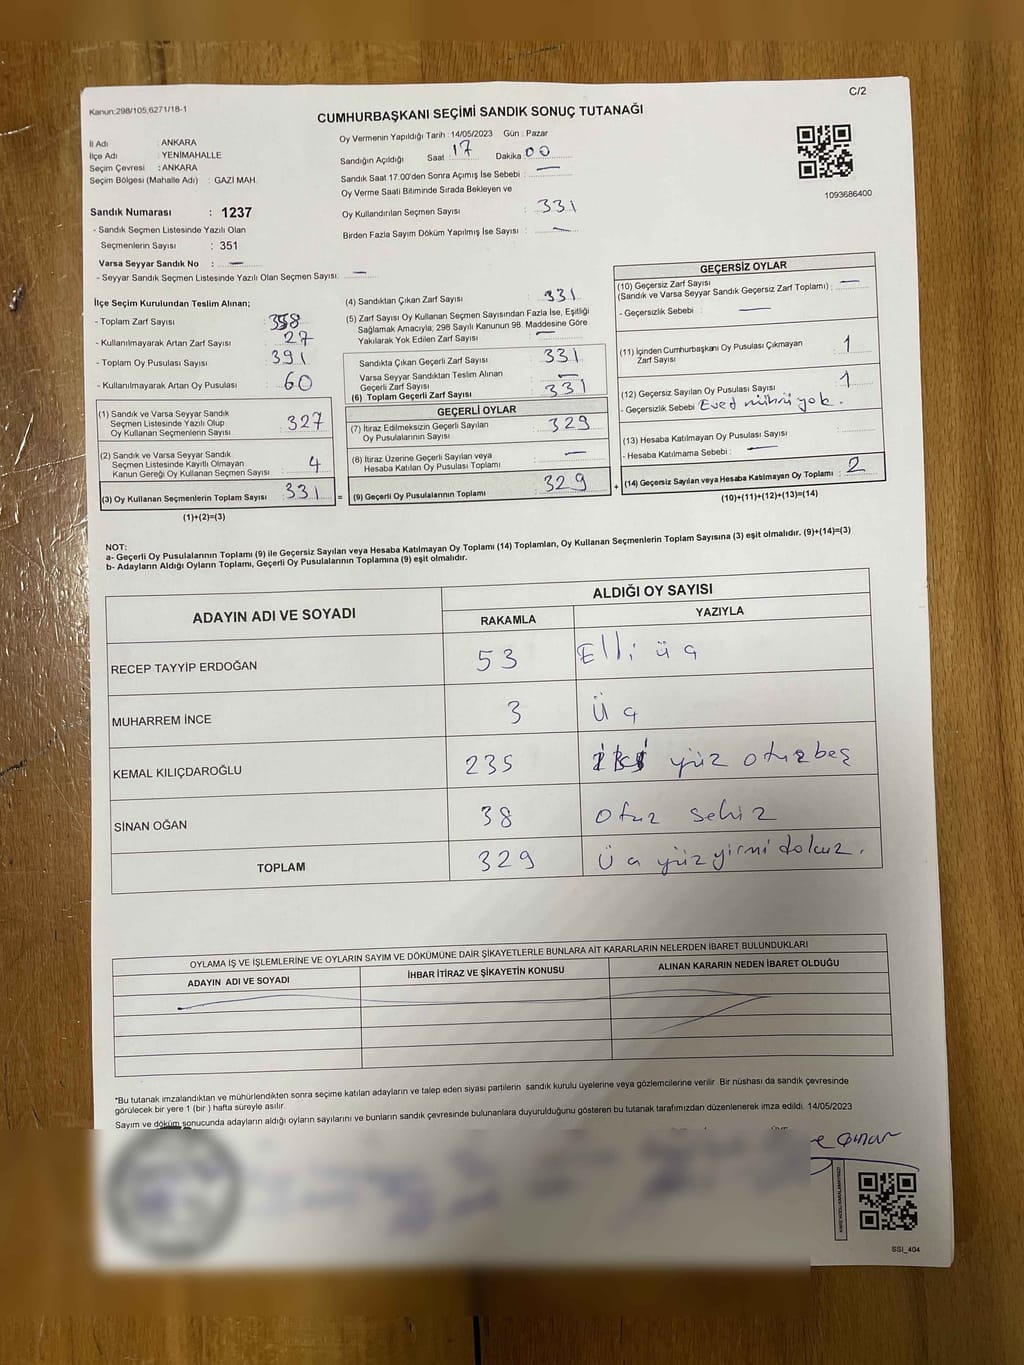 Kanun:298/105,6271/18-1
C/2
CUMHURBAŞKANI SEÇİMİ SANDIK SONUÇ TUTANAĞI
İl Adı : ANKARA
İlçe Adı : YENİMAHALLE
Seçim Çevresi : ANKARA
Seçim Bölgesi (Mahalle Adı) : GAZİ MAH.
Oy Vermenin Yapıldığı Tarih : 14/05/2023 Gün : Pazar
Sandığın Açıldığı Saat 17 Dakika 00
Sandık Saat 17.00'den Sonra Açımış İse Sebebi : —
Oy Verme Saati Bitiminde Sırada Bekleyen ve
Oy Kullandırılan Seçmen Sayısı : 331
Birden Fazla Sayım Döküm Yapılmış İse Sayısı : —
1093686400
Sandık Numarası : 1237
- Sandık Seçmen Listesinde Yazılı Olan
Seçmenlerin Sayısı : 351
Varsa Seyyar Sandık No : —
- Seyyar Sandık Seçmen Listesinde Yazılı Olan Seçmen Sayısı: —
İlçe Seçim Kurulundan Teslim Alınan;
- Toplam Zarf Sayısı : 358
- Kullanılmayarak Artan Zarf Sayısı : 27
- Toplam Oy Pusulası Sayısı : 391
- Kullanılmayarak Artan Oy Pusulası : 60
(1) Sandık ve Varsa Seyyar Sandık
Seçmen Listesinde Yazılı Olup
Oy Kullanan Seçmenlerin Sayısı : 327
(2) Sandık ve Varsa Seyyar Sandık
Seçmen Listesinde Kayıtlı Olmayan
Kanun Gereği Oy Kullanan Seçmen Sayısı : 4
(3) Oy Kullanan Seçmenlerin Toplam Sayısı : 331
(1)+(2)=(3)
(4) Sandıktan Çıkan Zarf Sayısı : 331
(5) Zarf Sayısı Oy Kullanan Seçmen Sayısından Fazla İse, Eşitliği
Sağlamak Amacıyla; 298 Sayılı Kanunun 98. Maddesine Göre
Yakılarak Yok Edilen Zarf Sayısı : —
Sandıkta Çıkan Geçerli Zarf Sayısı : 331
Varsa Seyyar Sandıktan Teslim Alınan
Geçerli Zarf Sayısı : —
(6) Toplam Geçerli Zarf Sayısı : 331
GEÇERLİ OYLAR
(7) İtiraz Edilmeksizin Geçerli Sayılan
Oy Pusulalarının Sayısı : 329
(8) İtiraz Üzerine Geçerli Sayılan veya
Hesaba Katılan Oy Pusulası Toplamı : —
= (9) Geçerli Oy Pusulalarının Toplamı : 329
GEÇERSİZ OYLAR
(10) Geçersiz Zarf Sayısı
(Sandık ve Varsa Seyyar Sandık Geçersiz Zarf Toplamı) : —
- Geçersizlik Sebebi : —
(11) İçinden Cumhurbaşkanı Oy Pusulası Çıkmayan
Zarf Sayısı : 1
(12) Geçersiz Sayılan Oy Pusulası Sayısı : 1
- Geçersizlik Sebebi Eved mührü yok.
(13) Hesaba Katılmayan Oy Pusulası Sayısı :
- Hesaba Katılmama Sebebi : —
+ (14) Geçersiz Sayılan veya Hesaba Katılmayan Oy Toplamı : 2
(10)+(11)+(12)+(13)=(14)
NOT:
a- Geçerli Oy Pusulalarının Toplamı (9) ile Geçersiz Sayılan veya Hesaba Katılmayan Oy Toplamı (14) Toplamları, Oy Kullanan Seçmenlerin Toplam Sayısına (3) eşit olmalıdır. (9)+(14)=(3)
b- Adayların Aldığı Oyların Toplamı, Geçerli Oy Pusulalarının Toplamına (9) eşit olmalıdır.
ADAYIN ADI VE SOYADI
ALDIĞI OY SAYISI
RAKAMLA YAZIYLA
RECEP TAYYİP ERDOĞAN 53 Elli üç
MUHARREM İNCE 3 Üç
KEMAL KILIÇDAROĞLU 235 iki yüz otuzbeş
SİNAN OĞAN 38 otuz sekiz
TOPLAM 329 Üç yüz yirmi dokuz.
OYLAMA İŞ VE İŞLEMLERİNE VE OYLARIN SAYIM VE DÖKÜMÜNE DAİR ŞİKAYETLERLE BUNLARA AİT KARARLARIN NELERDEN İBARET BULUNDUKLARI
ADAYIN ADI VE SOYADI İHBAR İTİRAZ VE ŞİKAYETİN KONUSU ALINAN KARARIN NEDEN İBARET OLDUĞU
*Bu tutanak imzalandıktan ve mühürlendikten sonra seçime katılan adayların ve talep eden siyasi partilerin sandık kurulu üyelerine veya gözlemcilerine verilir. Bir nüshası da sandık çevresinde
görülecek bir yere 1 (bir ) hafta süreyle asılır.
Sayım ve döküm sonucunda adayların aldığı oyların sayılarını ve bunların sandık çevresinde bulunanlara duyurulduğunu gösteren bu tutanak tarafımızdan düzenlenerek imza edildi. 14/05/2023
SSI_404